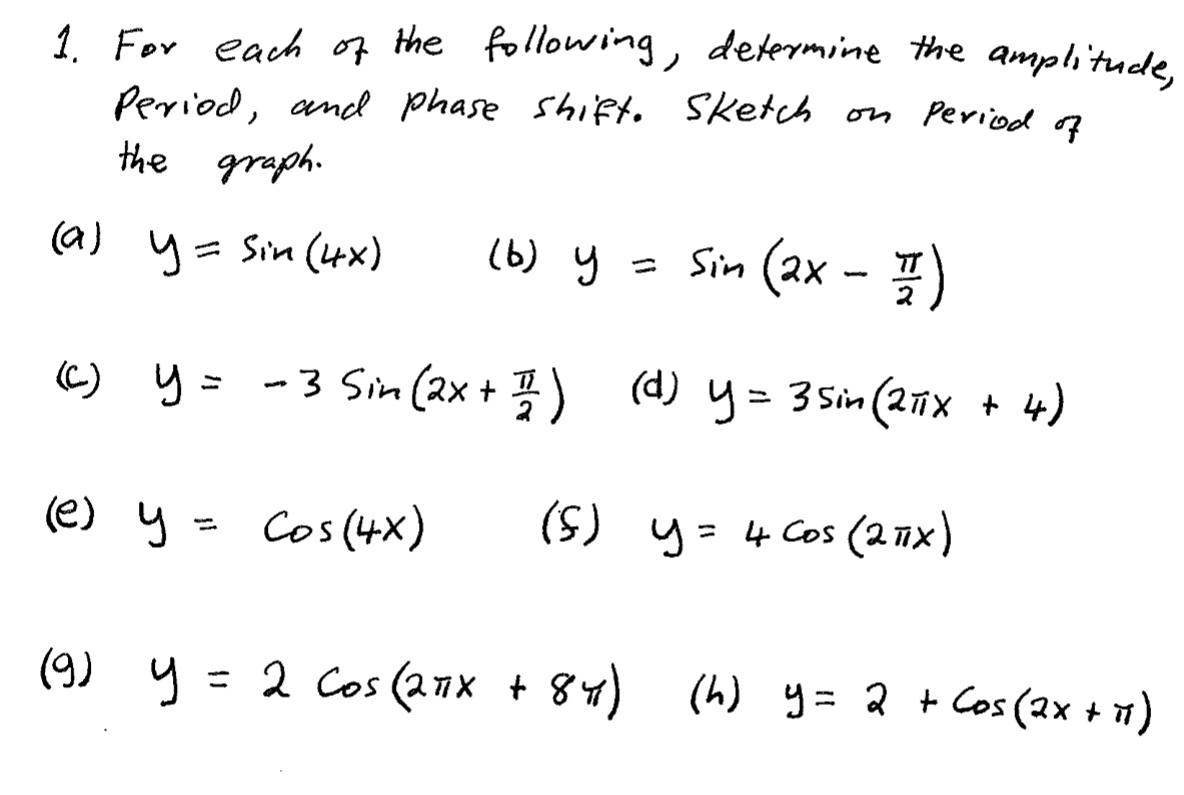 1. For each of the following, determine the amplitude,
Period, and phase shift. Sketch on Period of
the graph.
(a) y = Sin (4x) (b) y = Sin (2x - π/2)
(c) y = -3 Sin (2x + π/2) (d) y = 3 Sin (2πx + 4)
(e) y = Cos (4x) (f) y = 4 Cos (2πx)
(g) y = 2 Cos (2πx + 8π) (h) y = 2 + Cos (2x + π)